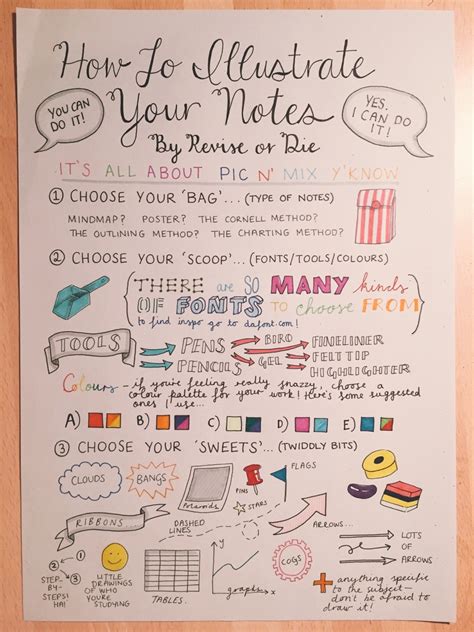 How To Illustrate
Your Notes
By Revise or Die
YOU CAN
DO IT!
YES,
I CAN DO
IT!
IT'S ALL ABOUT PIC N' MIX Y'KNOW
① CHOOSE YOUR 'BAG'... (TYPE OF NOTES)
MINDMAP? POSTER? THE CORNELL METHOD?
THE OUTLINING METHOD? THE CHARTING METHOD?
② CHOOSE YOUR 'SCOOP'... (FONTS/TOOLS/COLOURS)
THERE ARE SO MANY kinds
OF FONTS TO choose FROM
to find inspo go to dafont.com!
TOOLS
PENS
PENCILS
BIRO
GEL
FINELINER
FELT TIP
HIGHLIGHTER
Colours - if you're feeling really snazzy, choose a
colour palette for your work! Here's some suggested
ones I use...
A) B) C) D) E)
③ CHOOSE YOUR 'SWEETS'... (TWIDDLY BITS)
CLOUDS
BANGS
Polaroids
PINS
STARS
FLAGS
RIBBONS...
DASHED
LINES
ARROWS...
① ② ③
STEP-
BY-
STEPS!
HA!
LITTLE
DRAWINGS
OF WHO
YOU'RE
STUDYING
TABLES.
y
x
graphs
COGS
LOTS
OF
ARROWS
+ anything specific
to the subject-
don't be afraid to
draw it!